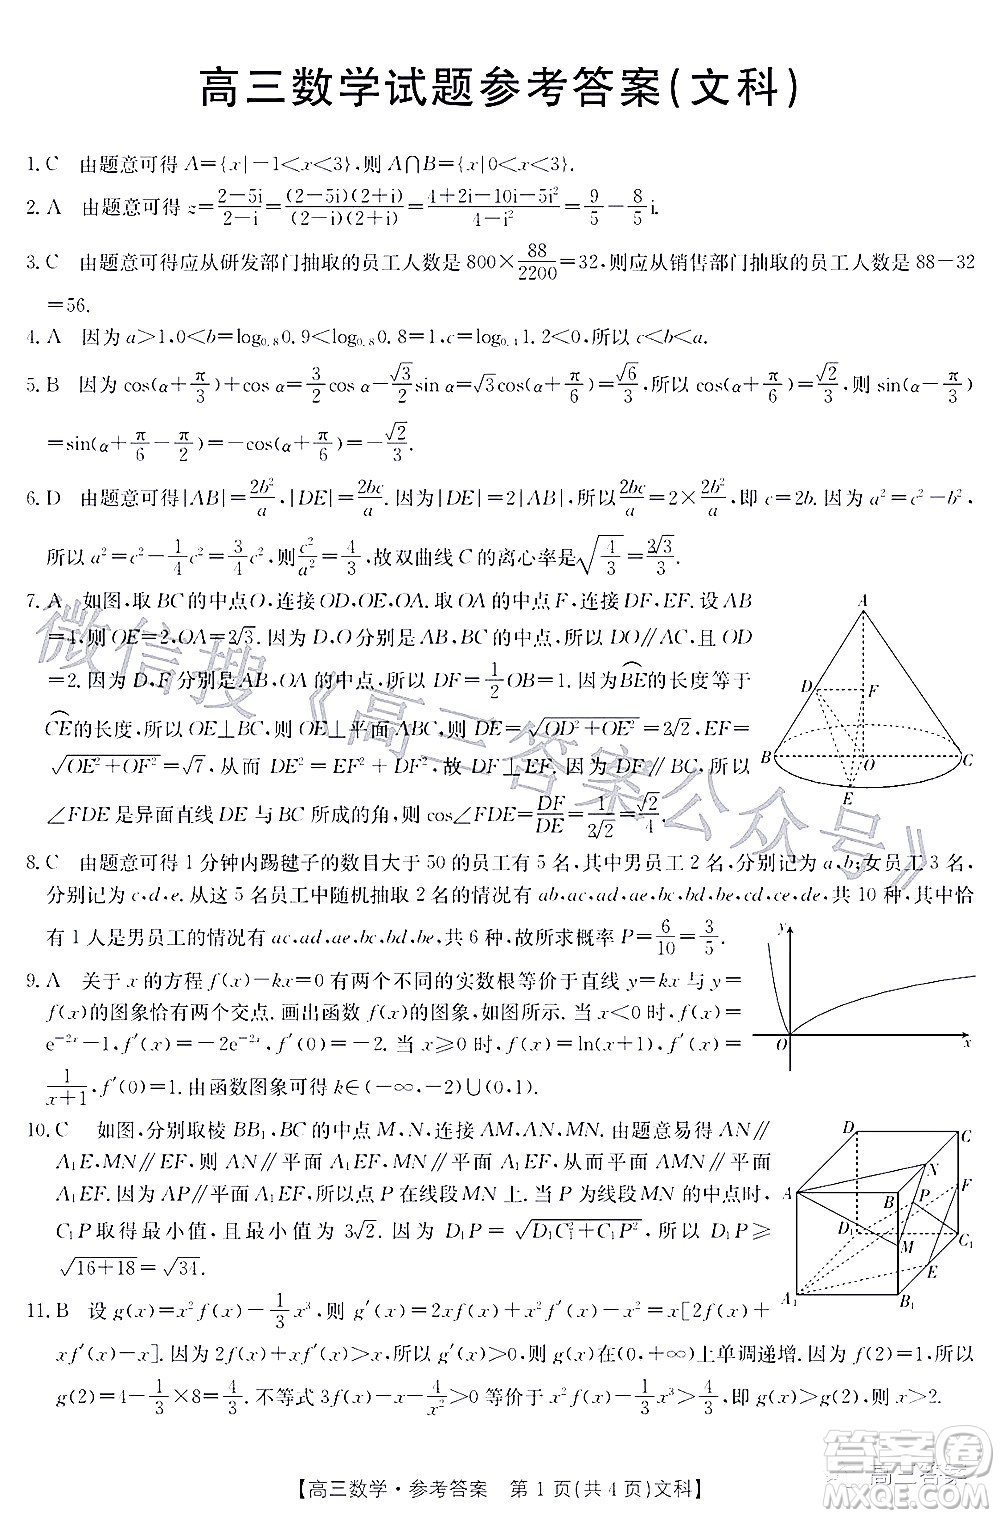 高三数学试题参考答案(文科)
1. C 由题意可得 A={x|-1<x<3},则 A∩B={x|0<x<3}.
2. A 由题意可得 z=\frac{2-5i}{2-i}=\frac{(2-5i)(2+i)}{(2-i)(2+i)}=\frac{4+2i-10i-5i²}{4-i²}=\frac{9}{5}-\frac{8}{5}i.
3. C 由题意可得应从研发部门抽取的员工人数是 800×\frac{88}{2200}=32,则应从销售部门抽取的员工人数是 88-32
=56.
4. A 因为 a>1,0<b=log₀.₈0.9<log₀.₈0.8=1,c=log₀.₄1.1<0,所以 c<b<a.
5. B 因为 cos(α+\frac{π}{3})+cos α=\frac{3}{2}cos α-\frac{√3}{2}sin α=√3cos(α+\frac{π}{6})=\frac{√6}{3},所以 cos(α+\frac{π}{6})=\frac{√2}{3},则 sin(α-\frac{π}{3})
=sin(α+\frac{π}{6}-\frac{π}{2})=-cos(α+\frac{π}{6})=-\frac{√2}{3}.
6. D 由题意可得|AB|=\frac{2b²}{a},|DE|=\frac{2bc}{a}.因为|DE|=2|AB|,所以\frac{2bc}{a}=2×\frac{2b²}{a},即 c=2b.因为 a²=c²-b²,
所以 a²=c²-\frac{1}{4}c²=\frac{3}{4}c²,则\frac{c²}{a²}=\frac{4}{3},故双曲线 C 的离心率是\sqrt{\frac{4}{3}}=\frac{2√3}{3}.
7. A 如图,取 BC 的中点O,连接 OD,OE,OA.取 OA 的中点 F,连接 DF,EF.设 AB
=4,则 OE=2,OA=2√3.因为 D,O 分别是 AB,BC 的中点,所以 DO∥AC,且 OD
=2.因为 D,F 分别是AB,OA 的中点,所以 DF=\frac{1}{2}OB=1.因为\overset{⌒}{BE}的长度等于
\overset{⌒}{CE}的长度,所以 OE⊥BC,所以 OE⊥平面 ABC,则 DE=\sqrt{OD²+OE²}=2√2,EF=
\sqrt{OE²+OF²}=√7,从而 DE²=EF²+DF²,故 DF⊥EF.因为 DF∥BC,所以
∠FDE 是异面直线 DE 与 BC 所成的角,则 cos∠FDE=\frac{DF}{DE}=\frac{1}{2√2}=\frac{√2}{4}.
A
D
F
B
O
C
E
8. C 由题意可得 1 分钟内踢毽子的数目大于 50 的员工有 5 名,其中男员工 2 名,分别记为 a,b;女员工 3 名,
分别记为 c,d,e.从这 5 名员工中随机抽取 2 名的情况有 ab,ac,ad,ae,bc,bd,be,cd,ce,de,共 10 种,其中恰
有 1 人是男员工的情况有 ac,ad,ae,bc,bd,be,共 6 种,故所求概率 P=\frac{6}{10}=\frac{3}{5}.
9. A 关于 x 的方程 f(x)-kx=0 有两个不同的实数根等价于直线 y=kx 与 y=
f(x)的图象恰有两个交点.画出函数 f(x)的图象,如图所示.当 x<0 时,f(x)=
e^{-2x}-1,f'(x)=-2e^{-2x},f'(0)=-2.当 x≥0 时,f(x)=ln(x+1),f'(x)=
\frac{1}{x+1},f'(0)=1.由函数图象可得 k∈(-∞,-2)∪(0,1).
y
O
x
10. C 如图,分别取棱 BB₁,BC 的中点 M,N,连接 AM,AN,MN.由题意易得 AN∥
A₁E,MN∥EF,则 AN∥平面 A₁EF,MN∥平面 A₁EF,从而平面 AMN∥平面
A₁EF.因为 AP∥平面 A₁EF,所以点 P 在线段 MN 上.当 P 为线段 MN 的中点时,
C₁P 取得最小值,且最小值为 3√2.因为 D₁P=\sqrt{D₁C₁²+C₁P²},所以 D₁P 的最小值为
\sqrt{16+18}=√34.
D
C
N
F
A
B
P
D₁
M
C₁
E
A₁
B₁
11. B 设 g(x)=x²f(x)-\frac{1}{3}x³,则 g'(x)=2xf(x)+x²f'(x)-x²=x[2f(x)+
xf'(x)-x].因为 2f(x)+xf'(x)>x,所以 g'(x)>0,所以 g(x)在(0,+∞)上单调递增.因为 f(2)=1,所以
g(2)=4-\frac{1}{3}×8=\frac{4}{3}.不等式 3f(x)-x-\frac{4}{x²}>0 等价于 x²f(x)-\frac{1}{3}x³>\frac{4}{3},即 g(x)>g(2),故 x>2.
【高三数学·参考答案 第 1 页(共 4 页)文科】
微信搜《高三答案公众号》
答案圈
高三答案
MXQE.COM